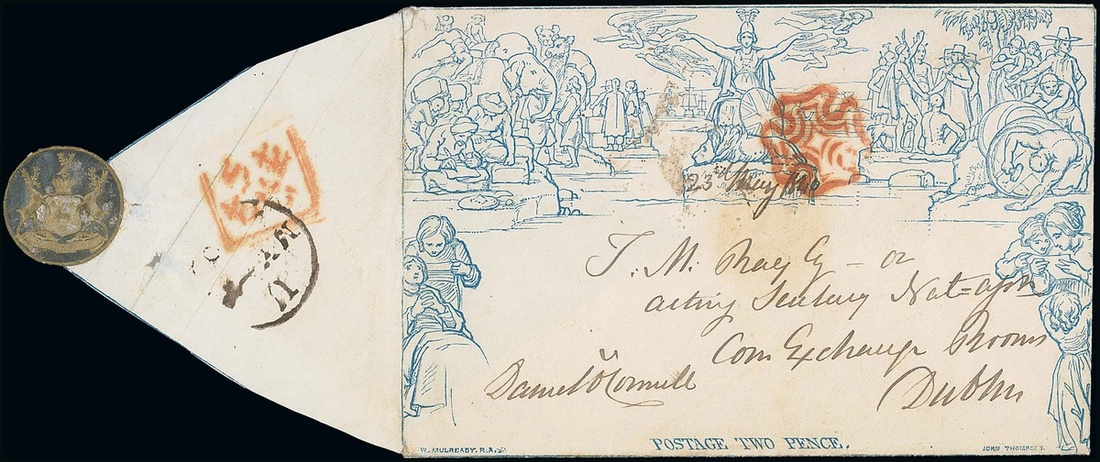 23rd May 1840
T. M. Ray Esq - or
acting Secretary Nat=
Corn Exchange Rooms
Daniel O'Connell
Dublin
POSTAGE TWO PENCE.
W. MULREADY, R.A.
JOHN THOMPSON.
MY